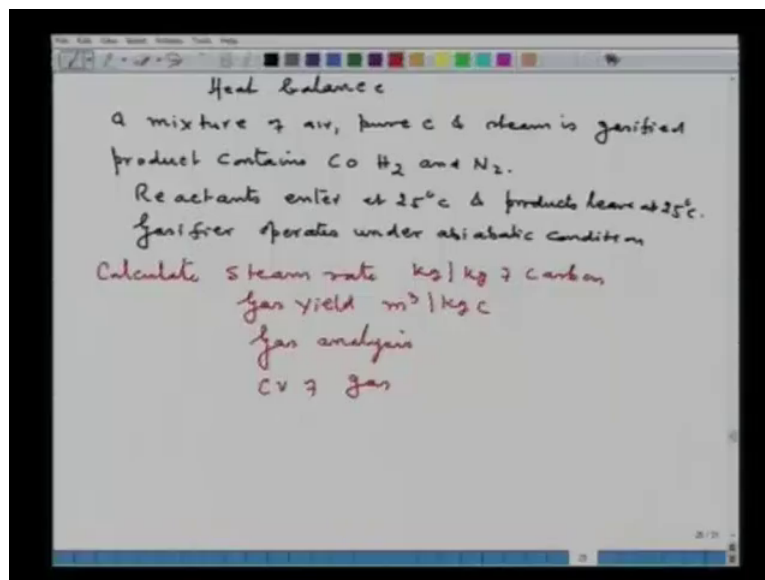 Heat balance
A mixture of air, pure C & steam is gasified
product contains CO H2 and N2.
Reactants enter at 25°C & products leave at 25°C.
Gasifier operates under abiabatic condition
Calculate steam rate kg/kg of carbon
Gas yield m³/kg C
Gas analysis
CV of gas